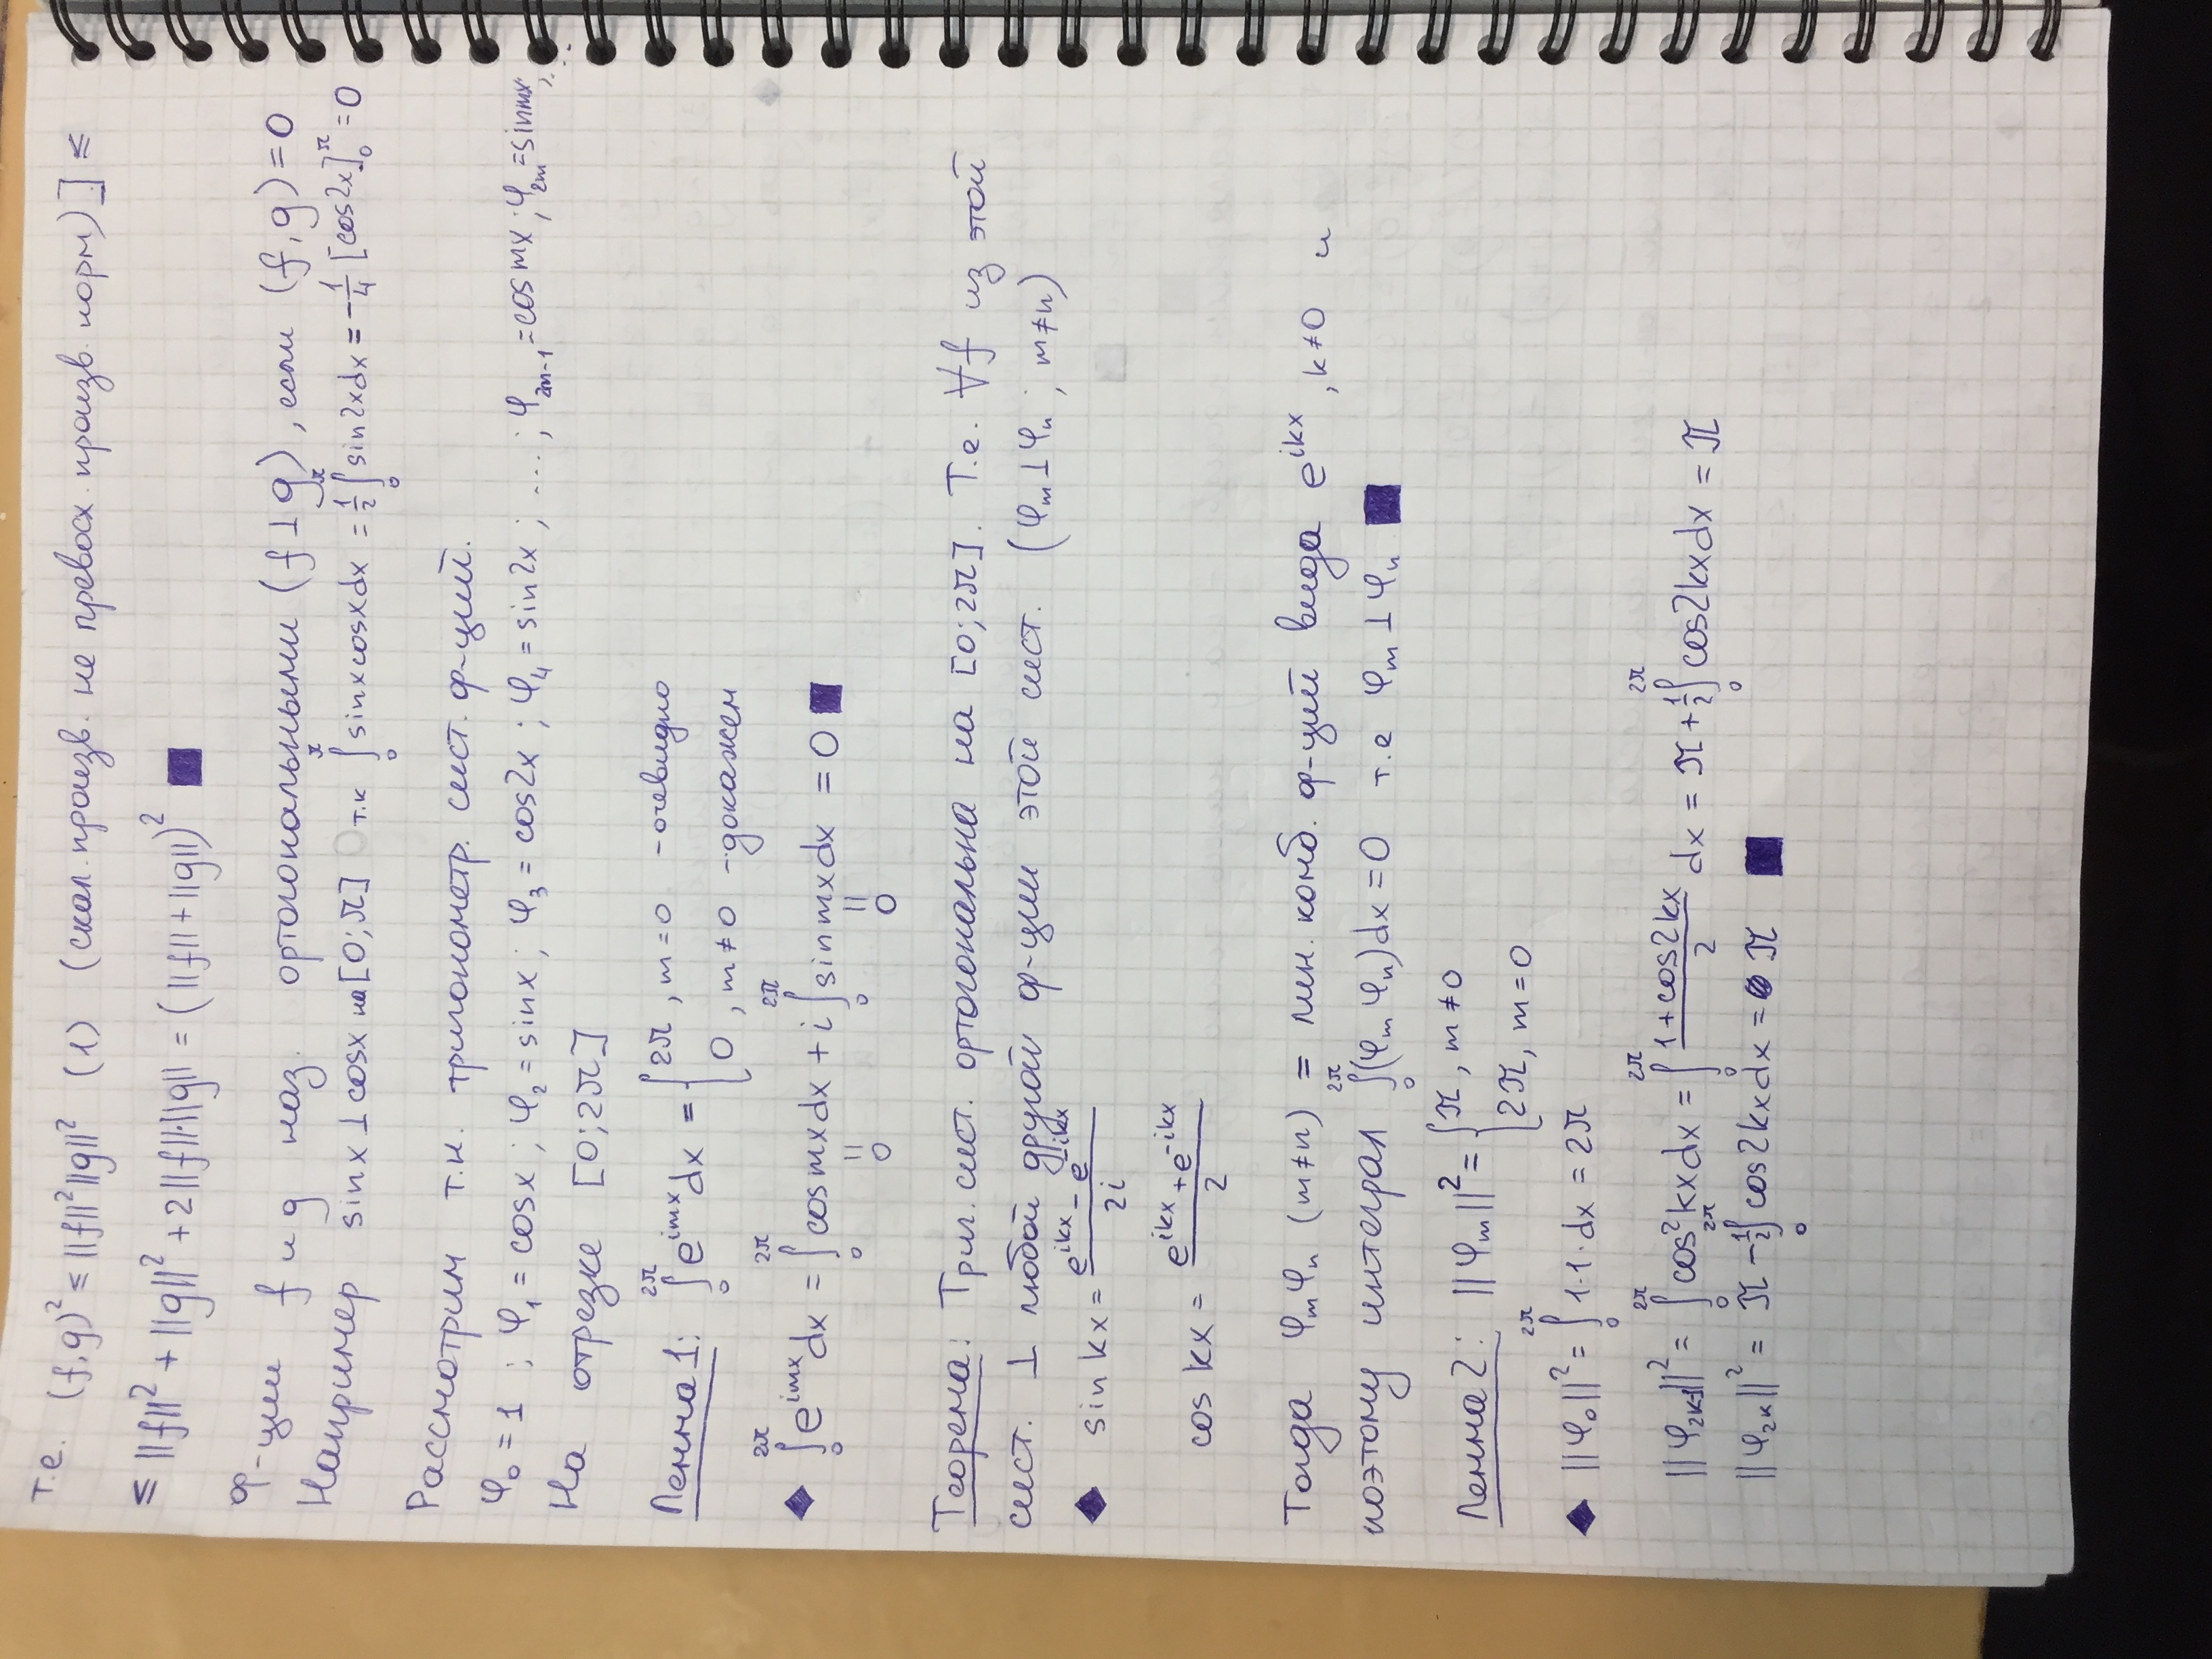 т.е. (f,g)² ≤ ||f||²||g||² (1) (скал. произв. не превосх. произв. норм)] ≤
≤ ||f||² + ||g||² + 2||f||·||g|| = (||f||+||g||)² ■
Ф-ции f и g наз. ортогональными (f⊥g), если (f,g)=0
Например sinx⊥cosx на [0;π] т.к ∫₀^π sinxcosxdx = ½∫₀^π sin2xdx = -¼ [cos2x]₀^π = 0
Рассмотрим т.н. тригонометр. сист. ф-ций.
φ₀ = 1 ; φ₁ = cosx ; φ₂ = sinx ; φ₃ = cos2x ; φ₄ = sin2x ; ... ; φ₂ₘ₋₁ = cosmx ; φ₂ₘ = sinmx; ...
На отрезке [0;2π]
Лемма 1: ∫₀^2π e^imx dx = { 2π , m=0 - очевидно
0 , m≠0 - докажем
◆ ∫₀^2π e^imx dx = ∫₀^2π cosmxdx + i∫₀^2π sinmxdx = 0 ■
|| ||
0 0
Теорема: Триг. сист. ортогональна на [0;2π]. Т.е. ∀f из этой
сист. ⊥ любой другой ф-ции этой сист. (φₘ⊥φₙ ; m≠n)
◆ sin kx = (e^ikx - e^-ikx)/2i
cos kx = (e^ikx + e^-ikx)/2
Тогда φₘφₙ (m≠n) = лин. комб. ф-ций вида e^ikx , k≠0 и
поэтому интеграл ∫₀^2π (φₘ φₙ)dx = 0 т.е φₘ⊥φₙ ■
Лемма 2: ||φₘ||² = { π , m≠0
2π, m=0
◆ ||φ₀||² = ∫₀^2π 1·1·dx = 2π
||φ₂ₖ₋₁||² = ∫₀^2π cos²kxdx = ∫₀^2π (1+cos2kx)/2 dx = π + ½∫₀^2π cos2kxdx = π
||φ₂ₖ||² = π - ½∫₀^2π cos2kxdx = π ■